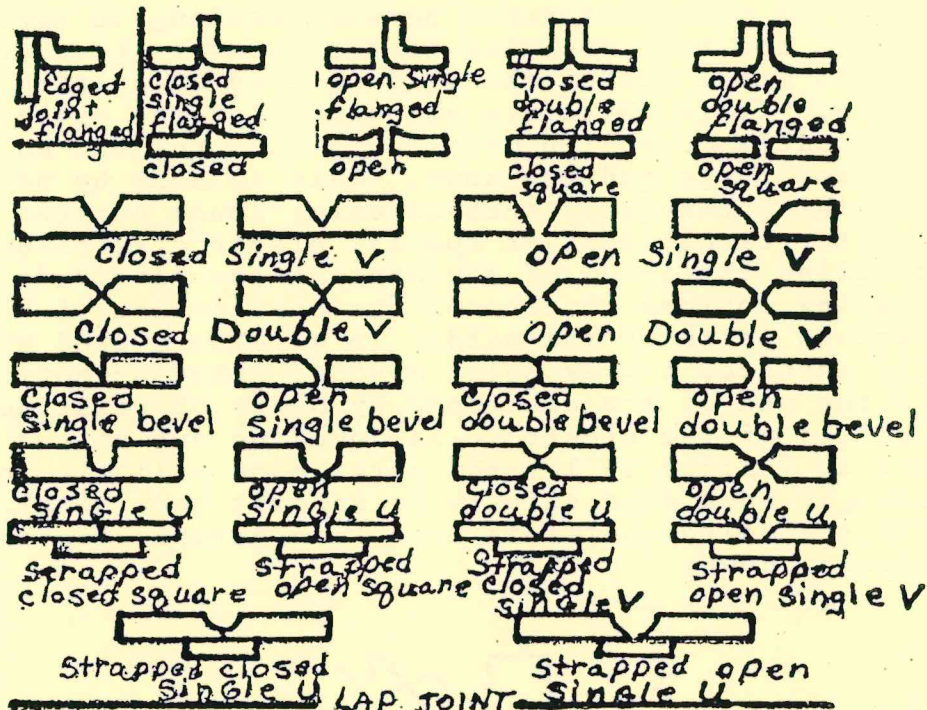 Edged
Joint
flanged
closed
single
flanged
open single
flanged
closed
double
flanged
open
double
flanged
closed
open
closed
square
open
square
Closed Single V
open Single V
Closed Double V
open Double V
closed
Single bevel
open
single bevel
closed
double bevel
open
double bevel
closed
SINGLE U
open
SINGLE U
closed
double U
open
double U
strapped
closed square
strapped
open square
Strapped
closed
single V
strapped
open single V
strapped closed
SINGLE U
strapped open
SINGLE U
LAP JOINT